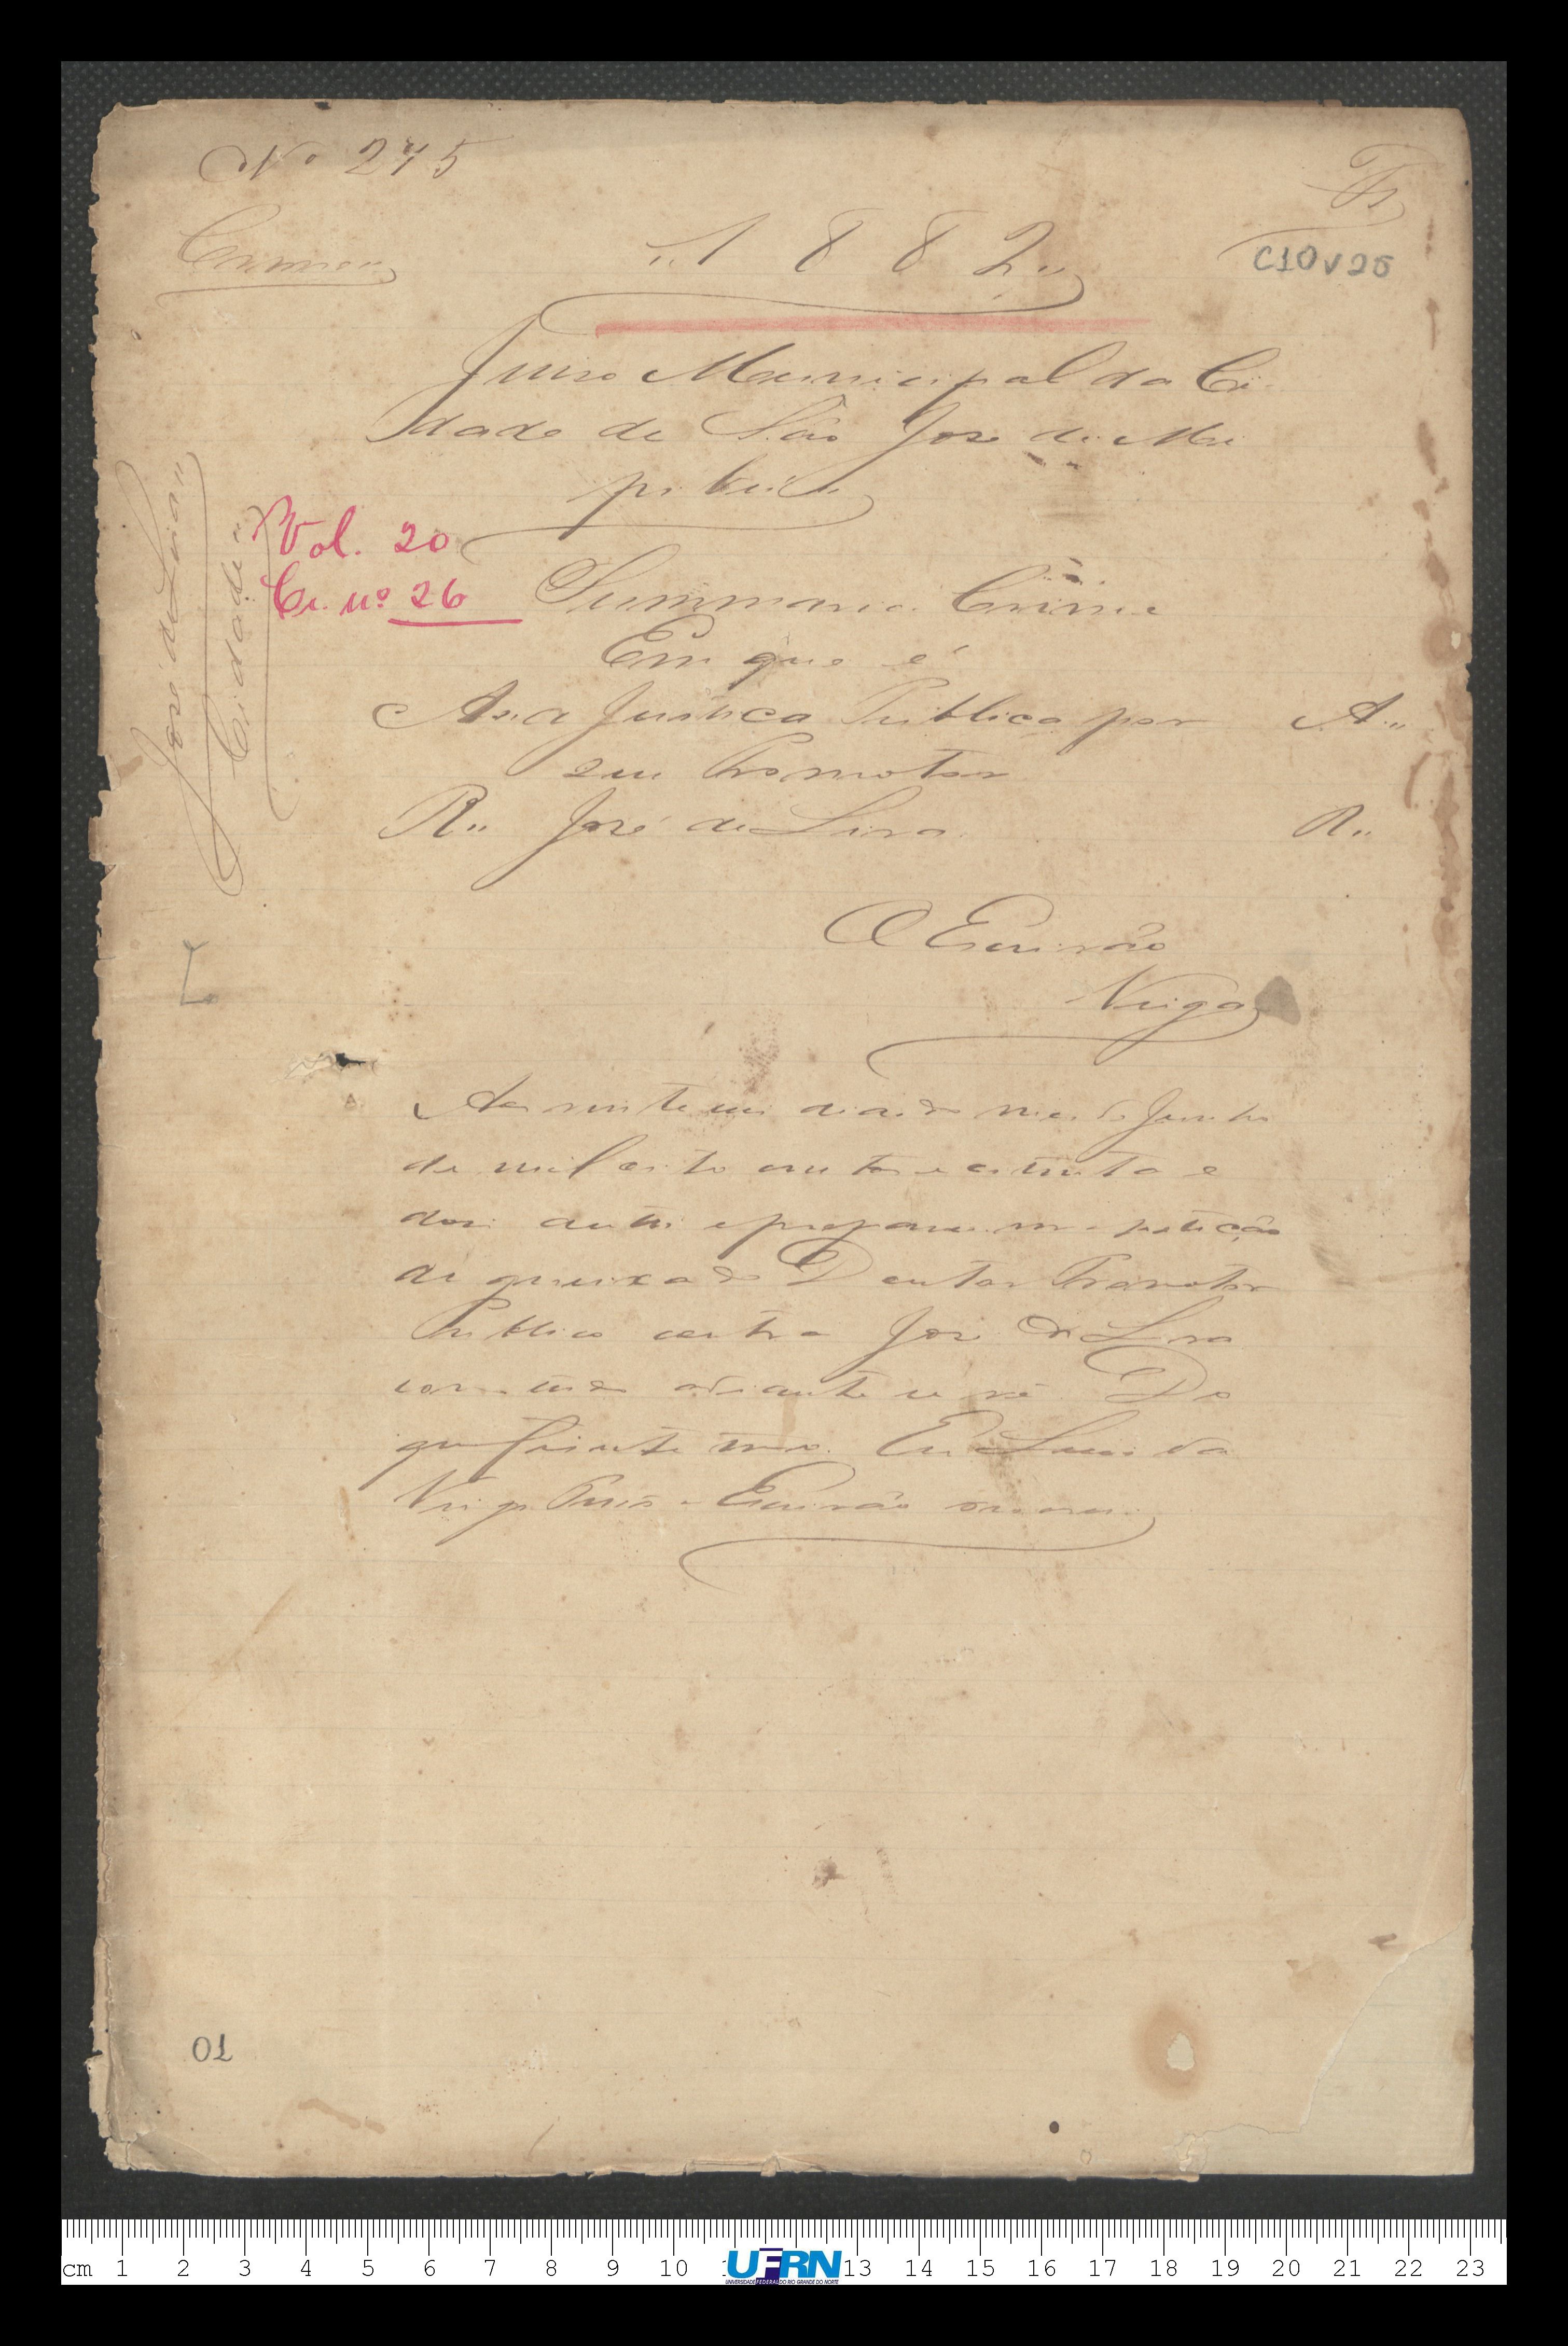 Nº 275
Crime
"1882"
C10V25
Juiso Municipal da Ci
dade de São José de Mi
pibú
José de Lira
Cidade
Vol. 20
Cr. nº 26
Summario Crime
Em que é
A. a Justica Publica por A.
seu Promotor
R. José de Lira R.
O Escrivão
Veiga
Aos vinte um dias do mes de Junho
de mil oito centos e oitenta e
dois autuei e preparei uma petição
de queixa do Doutor Promotor
Publico contra José de Lira
como tudo adiante se vê Do
que fis este termo. Eu Luis da
Veiga Escrivão escrevi
01
cm 1 2 3 4 5 6 7 8 9 10 13 14 15 16 17 18 19 20 21 22 23
UFRN
UNIVERSIDADE FEDERAL DO RIO GRANDE DO NORTE